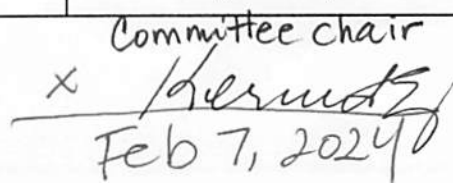 Committee chair
x
Feb 7, 2024